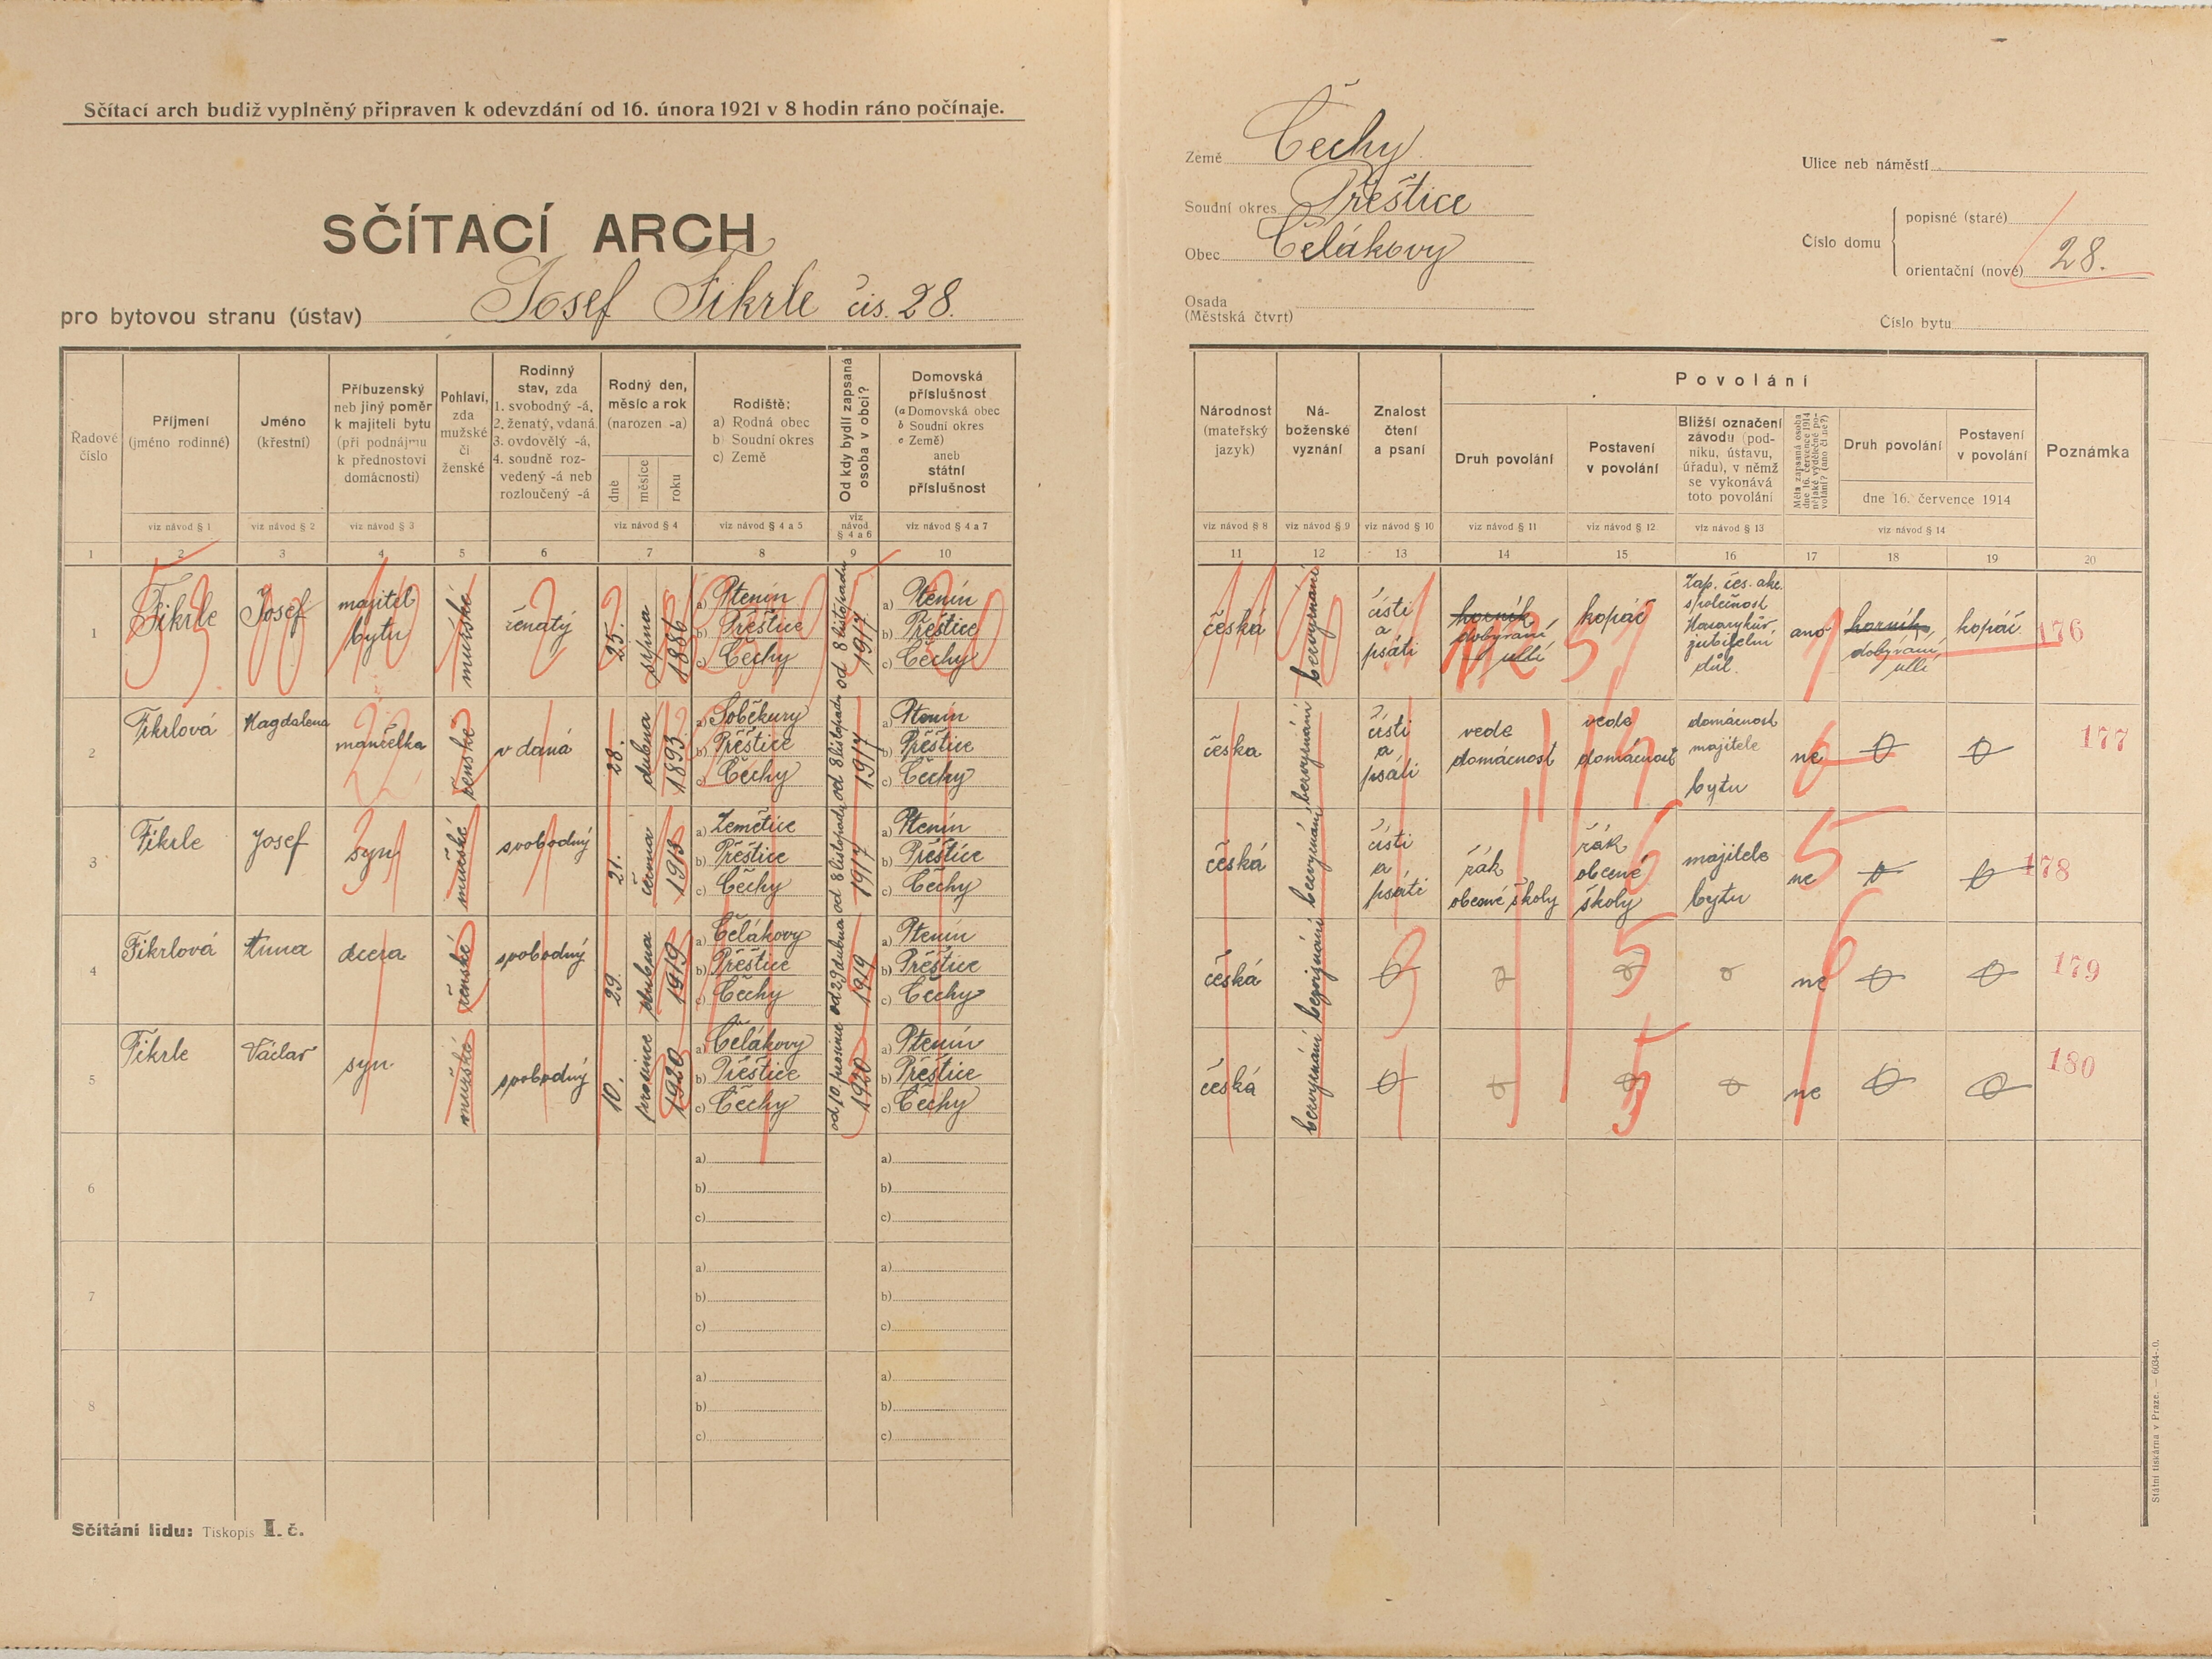 Sčítací arch budiž vyplněný připraven k odevzdání od 16. února 1921 v 8 hodin ráno počínaje.
SČÍTACÍ ARCH
pro bytovou stranu (ústav) Josef Fikrle čis. 28.
Země Čechy
Soudní okres Přeštice
Obec Čelákovy
Osada
(Městská čtvrt)
Ulice neb náměstí
Číslo domu
popisné (staré)
orientační (nové) 28.
Číslo bytu
Řadové číslo
Příjmení (jméno rodinné)
Jméno (křestní)
Příbuzenský neb jiný poměr k majiteli bytu (při podnájmu k přednostovi domácnosti)
Pohlaví, zda mužské či ženské
Rodinný stav, zda 1. svobodný -á, 2. ženatý, vdaná, 3. ovdovělý -á, 4. soudně rozvedený -á neb rozloučený -á
Rodný den, měsíc a rok (narozen -a)
dne měsíce roku
Rodiště: a) Rodná obec b) Soudní okres c) Země
Od kdy bydlí zapsaná osoba v obci?
Domovská příslušnost (a Domovská obec b Soudní okres c Země) aneb státní příslušnost
viz návod § 1 viz návod § 2 viz návod § 3 viz návod § 4 viz návod § 4 a 5 viz návod § 4 a 6 viz návod § 4 a 7
1 2 3 4 5 6 7 8 9 10
Národnost (mateřský jazyk)
Náboženské vyznání
Znalost čtení a psaní
Povolání
Druh povolání
Postavení v povolání
Bližší označení závodu (podniku, ústavu, úřadu), v němž se vykonává toto povolání
Měla zapsaná osoba dne 16. července 1914 nějaké výdělečné povolání? (ano či ne?)
Druh povolání
Postavení v povolání
dne 16. července 1914
Poznámka
viz návod § 8 viz návod § 9 viz návod § 10 viz návod § 11 viz návod § 12 viz návod § 13 viz návod § 14
11 12 13 14 15 16 17 18 19 20
1 Fikrle Josef majitel bytu mužské ženatý 25. srpna 1886 a) Ptenín b) Přeštice c) Čechy od 8 listopadu 1917 a) Ptenín b) Přeštice c) Čechy
česká bezvyznání čísti a psáti horník dobývání uhlí kopáč Záp. čes. akc. společnost Masarykův jubilejní důl ano horník dobývání uhlí kopáč 176
2 Fikrlová Magdalena manželka ženské vdaná 28. dubna 1893 a) Soběkury b) Přeštice c) Čechy od 8 listopadu 1917 a) Ptenín b) Přeštice c) Čechy
česka bezvyznání čísti a psáti vede domácnost vede domácnost domácnost majitele bytu ne 0 0 177
3 Fikrle Josef syn mužské svobodný 21. června 1913 a) Zemětice b) Přeštice c) Čechy od 8 listopadu 1917 a) Ptenín b) Přeštice c) Čechy
česká bezvyznání čísti a psáti žák obecné školy žák obecné školy majitele bytu ne 0 0 178
4 Fikrlová Anna dcera ženské svobodný 29. dubna 1919 a) Čelákovy b) Přeštice c) Čechy od 29 dubna 1919 a) Ptenín b) Přeštice c) Čechy
česká bezvyznání 0 0 0 0 ne 0 0 179
5 Fikrle Václav syn mužské svobodný 10. prosince 1920 a) Čelákovy b) Přeštice c) Čechy od 10 prosince 1920 a) Ptenín b) Přeštice c) Čechy
česká bezvyznání 0 0 0 0 ne 0 0 180
6 a) b) c) a) b) c)
7 a) b) c) a) b) c)
8 a) b) c) a) b) c)
Sčítání lidu: Tiskopis I. č.
Státní tiskárna v Praze. — 6034-.0.